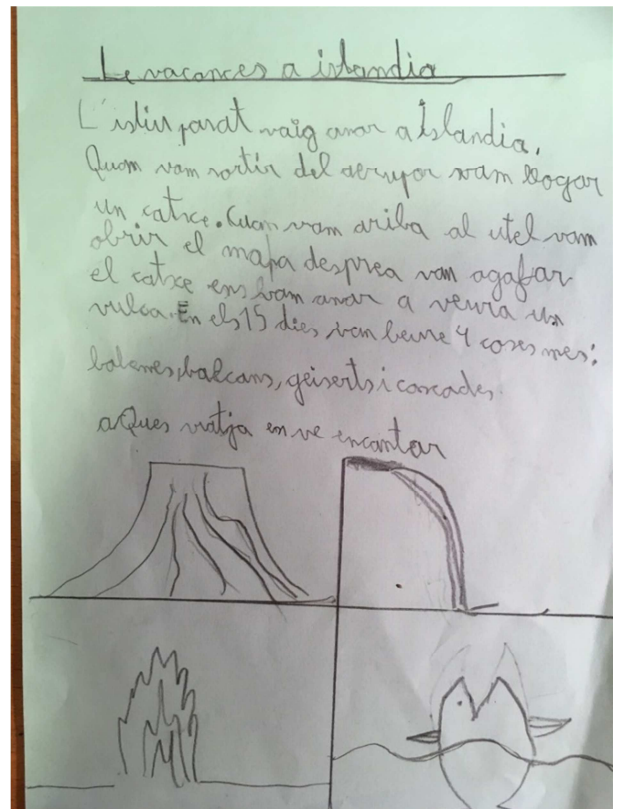 Le vacances a islandia
L'istiu pasat vaig anar a Islandia.
Quam vam sortir del aerupor vam llogar
un catxe. Cuan vam ariba al utel vam
obrir el mapa desprea van agafar
el catxe ens vam anar a veura un
vulca. En els 15 dies vam beure 4 coses mes:
balenes, balcans, geiserts i cascades.
aQues viatja em ve encantar